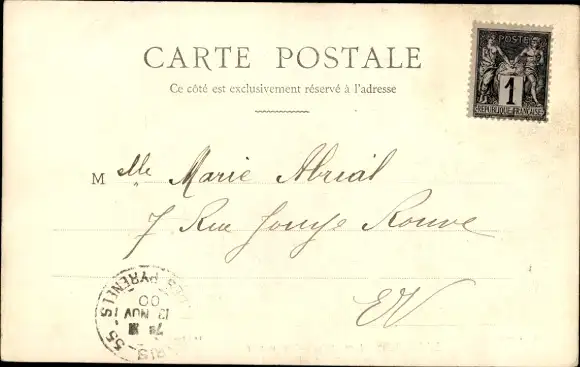 CARTE POSTALE
Ce côté est exclusivement réservé à l'adresse
POSTE
1
REPUBLIQUE FRANÇAISE
Mlle Marie Abrial
7 Rue Jouye Rouve
EV
PARIS - 55
7E
12 NOV
00
PYRENEES